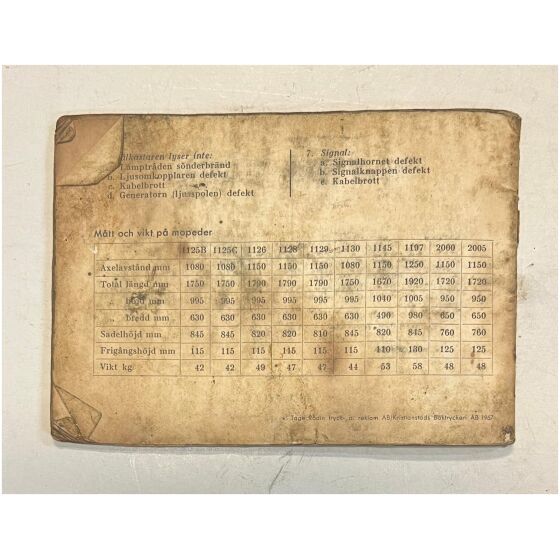 lkastaren lyser inte:
Lamptråden sönderbränd
Ljusomkopplaren defekt
c. Kabelbrott
d. Generatorn (ljusspolen) defekt
7. Signal:
a. Signalhornet defekt
b. Signalknappen defekt
c. Kabelbrott
Mått och vikt på mopeder
1125B 1125C 1126 1128 1129 1130 1145 1197 2000 2005
Axelavstånd mm 1080 1080 1150 1150 1150 1080 1150 1250 1150 1150
Total längd mm 1750 1750 1790 1790 1790 1750 1670 1920 1720 1720
„ höjd mm 995 995 995 995 995 995 1040 1005 950 950
„ bredd mm 630 630 630 630 630 630 490 980 650 650
Sadelhöjd mm 845 845 820 820 810 845 820 845 760 760
Frigångshöjd mm 115 115 115 115 115 115 110 130 125 125
Vikt kg. 42 42 49 47 47 44 53 58 48 48
Tage Rödin tryck- o. reklam AB/Kristianstads Boktryckeri AB 1967